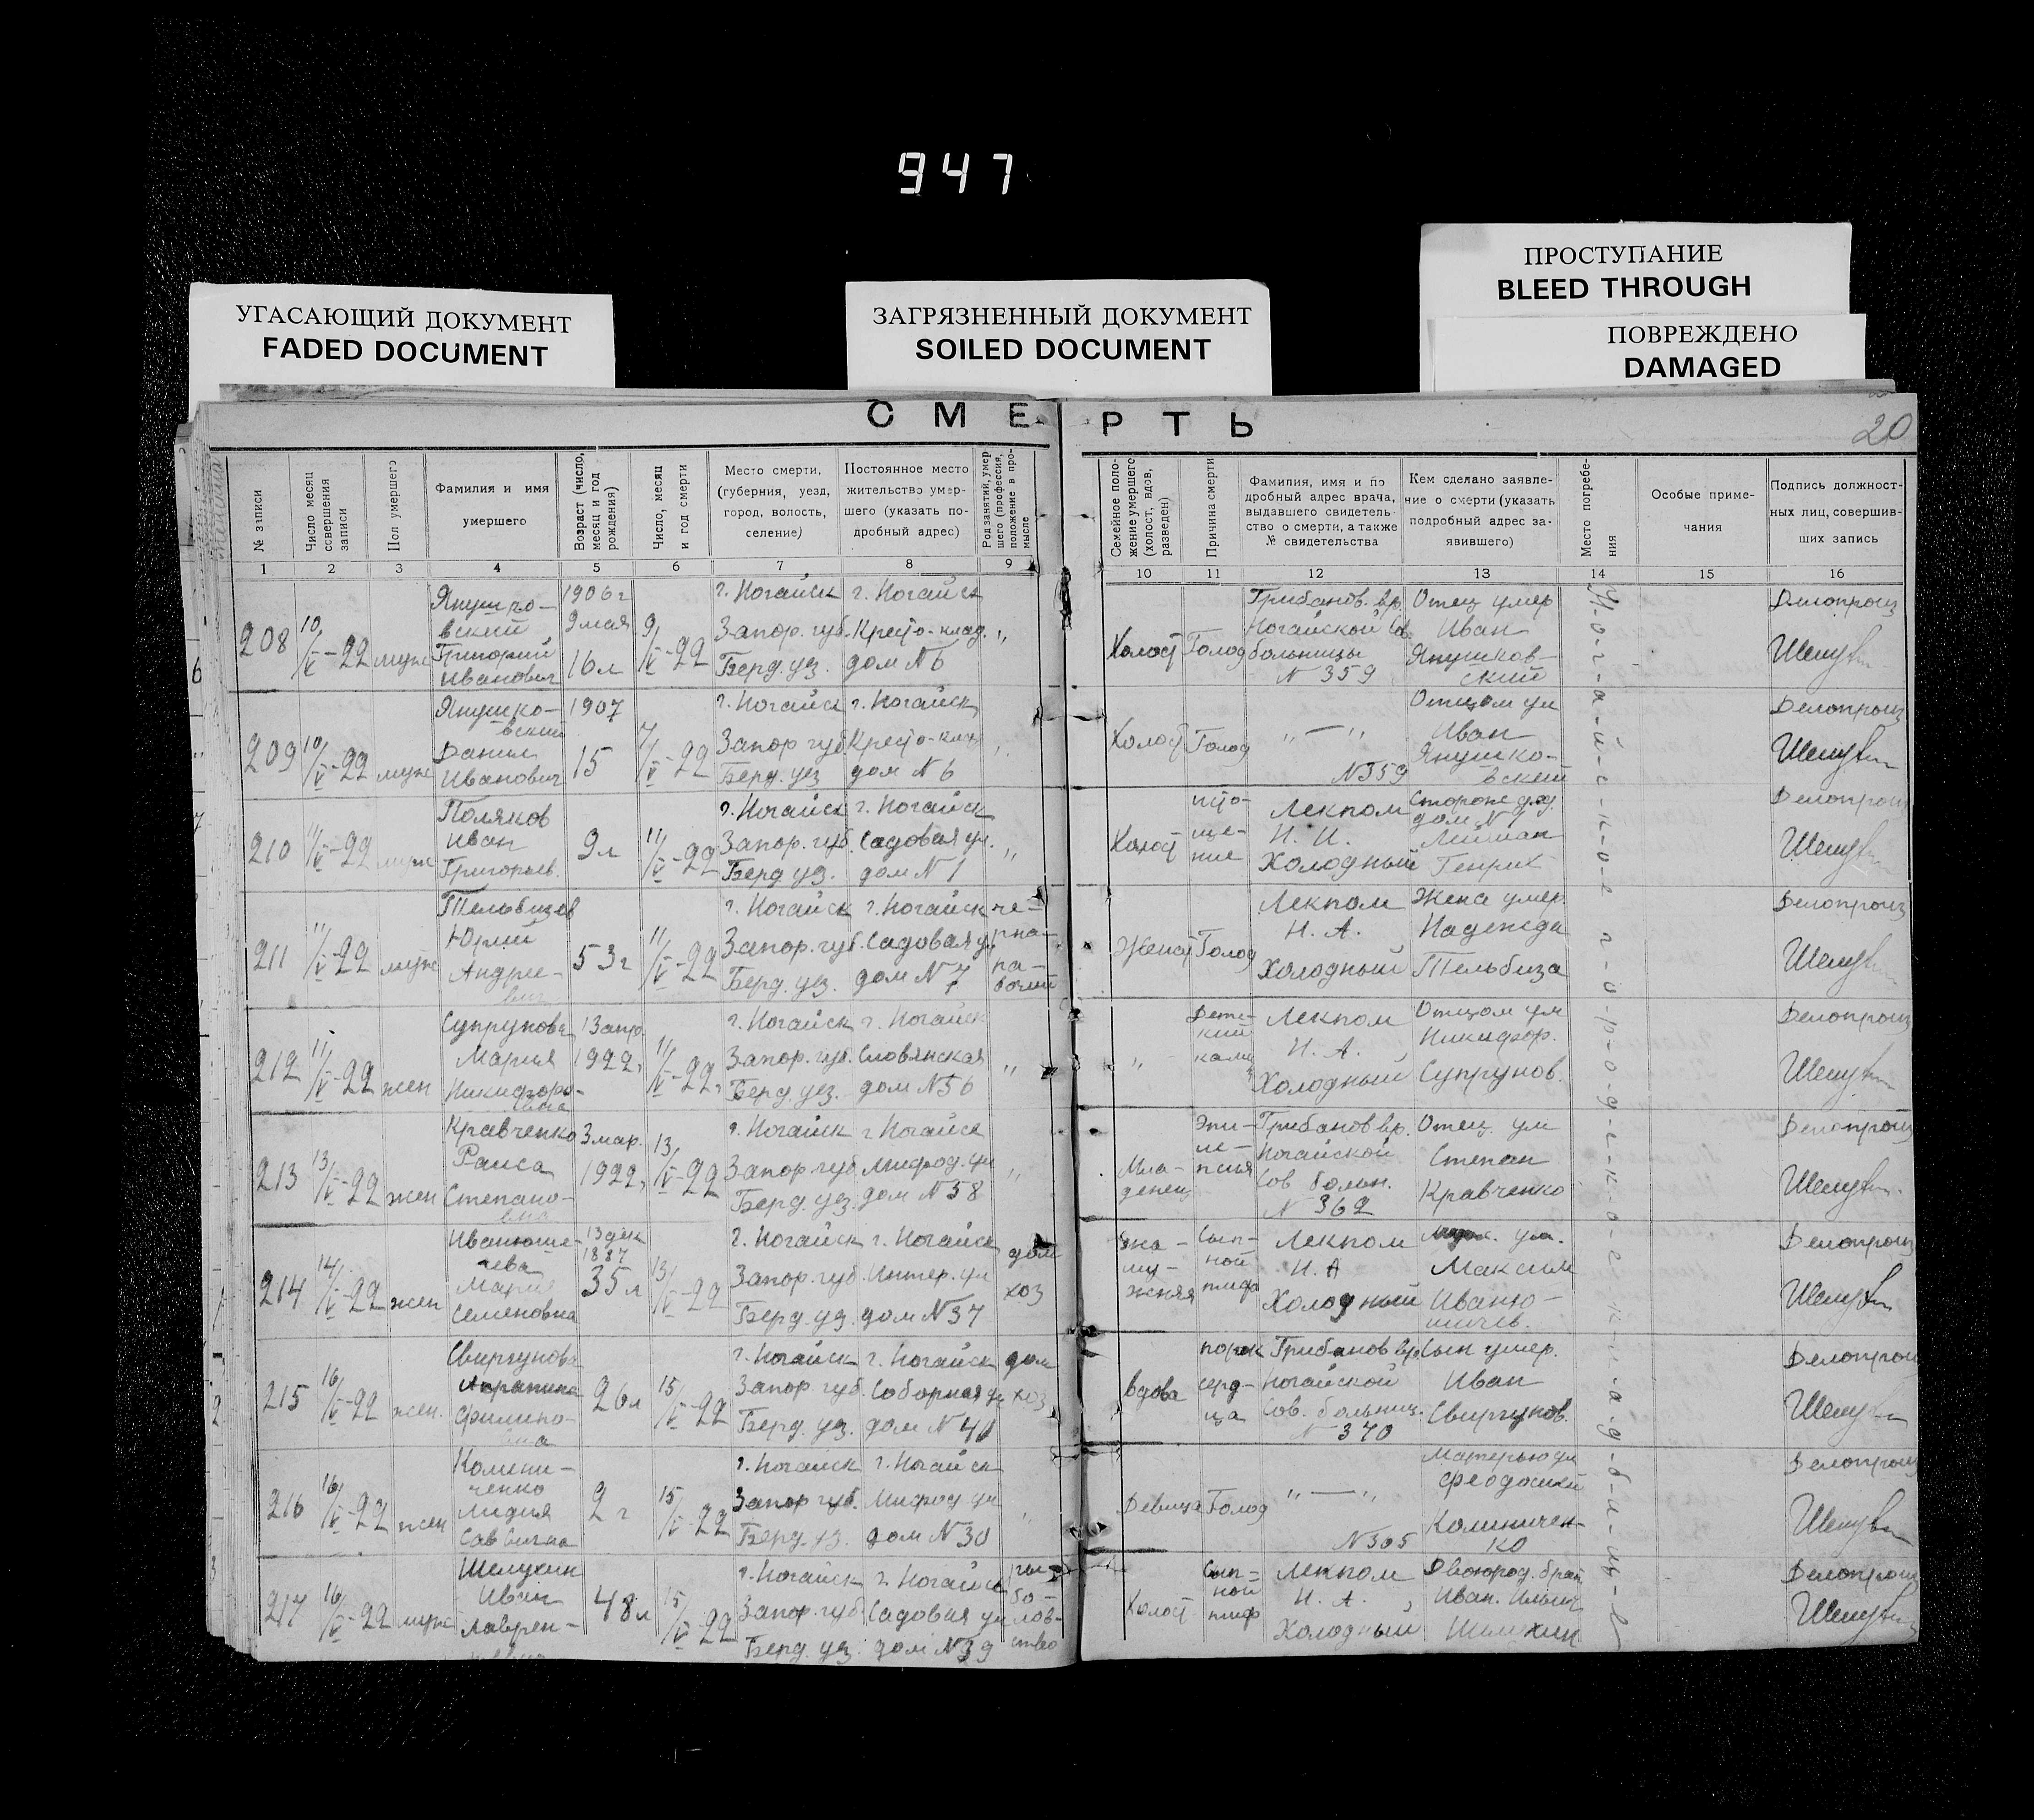 947
ПРОСТУПАНИЕ
BLEED THROUGH
УГАСАЮЩИЙ ДОКУМЕНТ
FADED DOCUMENT
ЗАГРЯЗНЕННЫЙ ДОКУМЕНТ
SOILED DOCUMENT
ПОВРЕЖДЕНО
DAMAGED
СМЕРТЬ
20
№ записи
Число месяц совершения записи
Пол умершего
Фамилия и имя умершего
Возраст (число, месяц и год рождения)
Число, месяц и год смерти
Место смерти, (губерния, уезд, город, волость, селение)
Постоянное место жительство умершего (указать подробный адрес)
Род занятий, умершего (профессия, положение в промысле
Семейное положение умершего (холост, вдов, разведен)
Причина смерти
Фамилия, имя и подробный адрес врача, выдавшего свидетельство о смерти, а также № свидетельства
Кем сделано заявление о смерти (указать подробный адрес заявившего)
Место погребения
Особые примечания
Подпись должностных лиц, совершивших запись
1 2 3 4 5 6 7 8 9 10 11 12 13 14 15 16
208 10/V-22 муж Янушковский Григорий Иванович 1906 г 9 мая 16 л 9/V-22 г. Ногайск Запор. губ. Берд. уз. г. Ногайск Кресто-клад. дом N 6 " Холост Голод Грибанов. вр. Ногайской Сов. больницы N 359 Отец умер Иван Янушковский Делопроиз
209 10/V-22 муж Янушковский Данил Иванович 1907 15 7/V-22 г. Ногайск Запор губ. Берд. уез г. Ногайск Кресто-клад дом N 6 " Холост Голод "—" N 359 Отцом ум Иван Янушковский Делопроиз
210 11/V-22 муж Поляков Иван Григорьев. 9 л 11/V-22 г. Ногайск Запор. губ. Берд уз. г. Ногайск Садовая ул. дом N 1 " Холост Лекпом Н. И. Холодный Сторож дет. дом N 1 Генрих Делопроиз
211 11/V-22 муж Тельбизов Юрий Андреевич 53 г 11/V-22 г. Ногайск Запор. губ. Берд. уез. г. Ногайск Садовая ул дом N 7 чернорабочий Женат Голод Лекпом Н. А. Холодный Жена умер. Надежда Тельбиза Делопроиз
212 11/V-22 жен Супрунова Мария Никифоровна 13 апр. 1922 г 11/V-22 г. г. Ногайск Запор. губ. Берд. уез. г. Ногайск Словянская дом N 56 " " Лекпом Н. А. Холодный Отцом ум Никифор. Супрунов. Делопроиз
213 13/V-22 жен Кравченко Раиса Степановна 3 мар. 1922 г 13/V-22 г. Ногайск Запор губ Берд. уз. г Ногайск Мифод. ул дом N 58 " Младенец Эпилепсия Грибанов вр. Ногайской Сов больн. N 362 Отец. ум Степан Кравченко Делопроиз
214 14/V-22 жен Мария Семеновна 13 дек 1887 35 л 13/V-22 г. Ногайск Запор. губ. Берд. уз. г. Ногайск Интер. ул дом N 37 дом хоз замужняя Сыпной тифа Лекпом Н. А Холодный Максим Делопроиз
215 16/V-22 жен. Свиргунова 26 л 15/V-22 г. Ногайск Запор. губ. Берд. уз. г. Ногайск Соборная ул дом N 40 дом хоз Вдова порок сердца Грибанов вр. Ногайской Сов. больниц. N 370 Сын умер. Иван Свиргунов. Делопроиз
216 16/V-22 жен Лидия Саввична 2 г 15/V-22 г. Ногайск Запор губ. Берд. уз. г. Ногайск Мифод ул дом N 30 " Девица Голод "—" N 305 Матерью ум Феодосией Делопроиз
217 16/V-22 муж Шелухин Иван 48 л 15/V-22 г. Ногайск Запор. губ Берд. уз. г. Ногайск Садовая ул дом N 39 рыболовство Холост Сыпной тиф Лекпом Н. А. Холодный Двоюрод. брат Иван. Ильич Шелухин Делопроиз
Н-о-г-а-й-с-к-о-е г-о-р-о-д-с-к-о-е к-л-а-д-б-и-щ-е